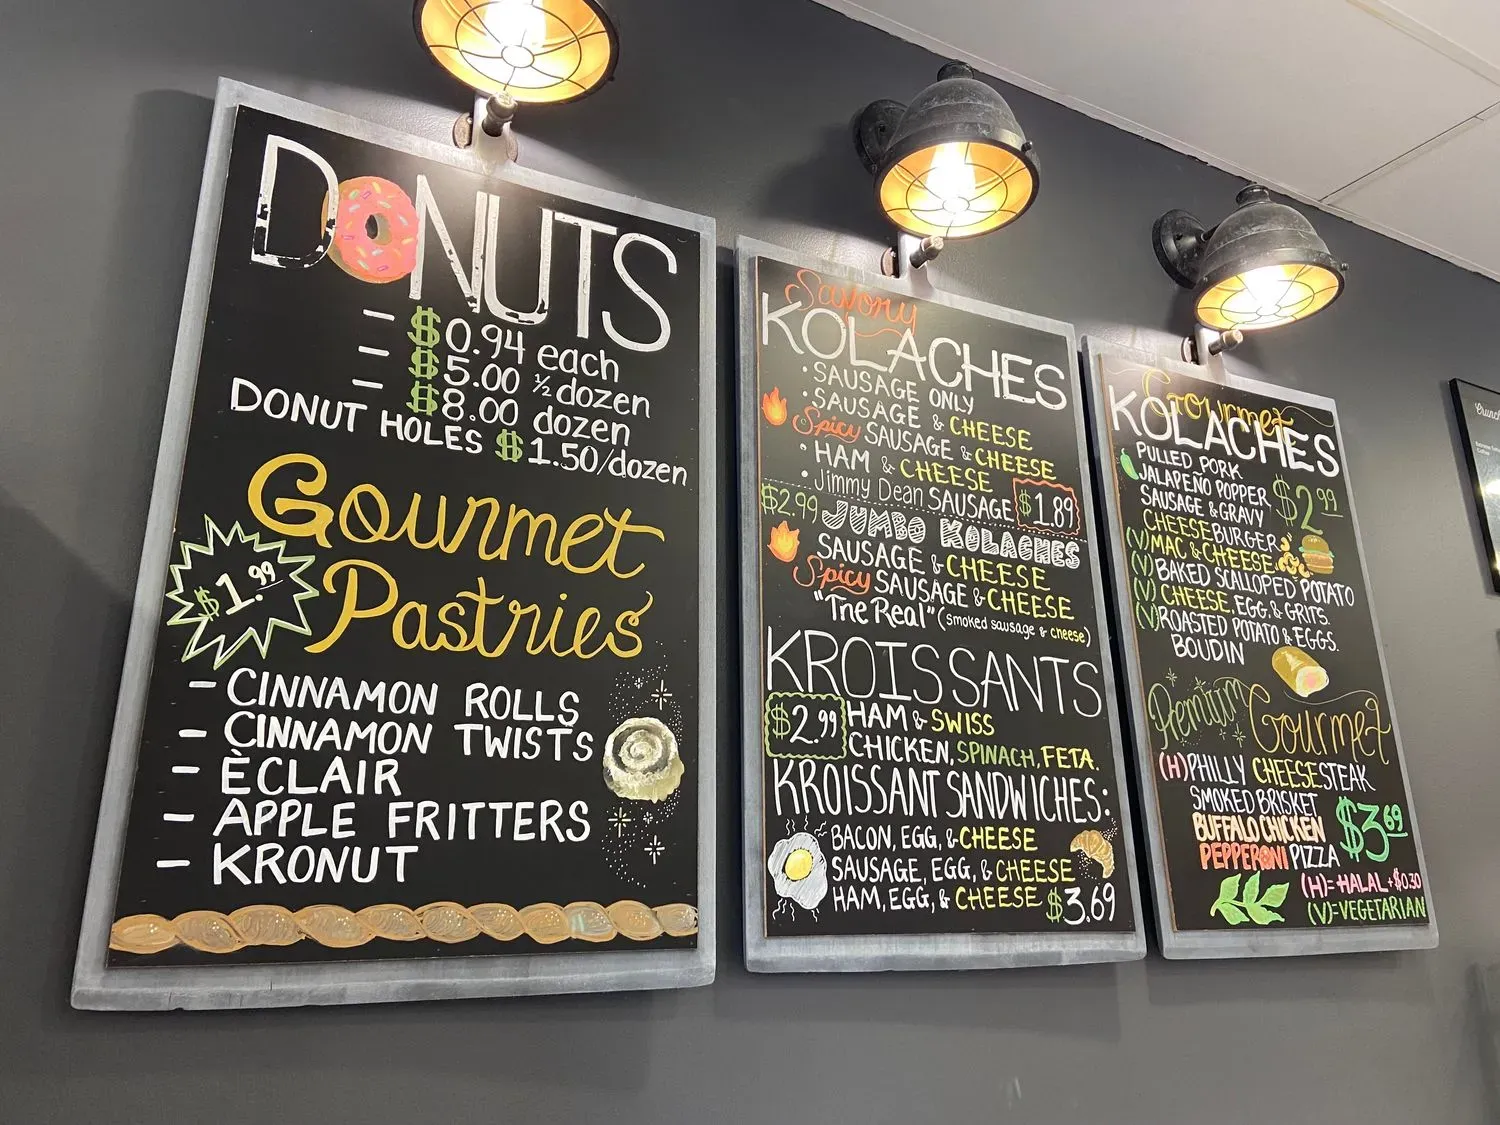 DONUTS
- $0.94 each
- $5.00 ½ dozen
- $8.00 dozen
DONUT HOLES $1.50/dozen
Gourmet
Pastries
$1.99
- CINNAMON ROLLS
- CINNAMON TWISTS
- ÈCLAIR
- APPLE FRITTERS
- KRONUT
Savory
KOLACHES
• SAUSAGE ONLY
• SAUSAGE & CHEESE
Spicy SAUSAGE & CHEESE
• HAM & CHEESE
• Jimmy Dean SAUSAGE $1.89
$2.99 JUMBO KOLACHES
SAUSAGE & CHEESE
Spicy SAUSAGE & CHEESE
"The Real" (smoked sausage & cheese)
KROISSANTS
$2.99 HAM & SWISS
CHICKEN, SPINACH, FETA.
KROISSANT SANDWICHES:
BACON, EGG, & CHEESE
SAUSAGE, EGG, & CHEESE
HAM, EGG, & CHEESE $3.69
Gourmet
KOLACHES
PULLED PORK
JALAPEÑO POPPER $2.99
SAUSAGE & GRAVY
CHEESEBURGER
(V) MAC & CHEESE
(V) BAKED SCALLOPED POTATO
(V) CHEESE, EGG, & GRITS.
(V) ROASTED POTATO & EGGS.
BOUDIN
Premium Gourmet
(H) PHILLY CHEESESTEAK
SMOKED BRISKET
BUFFALO CHICKEN $3.69
PEPPERONI PIZZA
(H) = HALAL +$0.30
(V) = VEGETARIAN